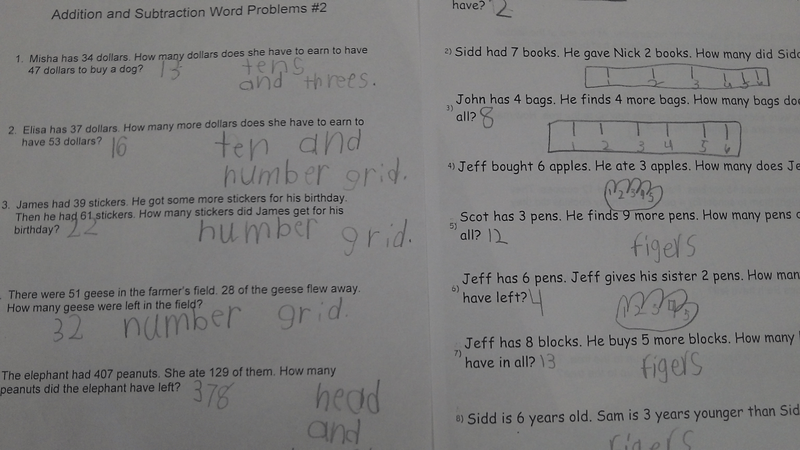 Addition and Subtraction Word Problems #2
1. Misha has 34 dollars. How many dollars does she have to earn to have
47 dollars to buy a dog? 13 tens
and threes.
2. Elisa has 37 dollars. How many more dollars does she have to earn to
have 53 dollars? 16 ten and
number grid.
3. James had 39 stickers. He got some more stickers for his birthday.
Then he had 61 stickers. How many stickers did James get for his
birthday? 22 number grid.
There were 51 geese in the farmer's field. 28 of the geese flew away.
How many geese were left in the field?
32 number grid.
The elephant had 407 peanuts. She ate 129 of them. How many
peanuts did the elephant have left? 378 head
and
have? 2
2) Sidd had 7 books. He gave Nick 2 books. How many did Sidd
1 2 3 4 5 6
3) John has 4 bags. He finds 4 more bags. How many bags doe
all? 8
1 2 3 4 5 6
4) Jeff bought 6 apples. He ate 3 apples. How many does Je
1 2 3 4 5
5) Scot has 3 pens. He finds 9 more pens. How many pens
all? 12 figers
6) Jeff has 6 pens. Jeff gives his sister 2 pens. How man
have left? 4
1 2 3 4 5
7) Jeff has 8 blocks. He buys 5 more blocks. How many
have in all? 13 figers
8) Sidd is 6 years old. Sam is 3 years younger than Sid
figers